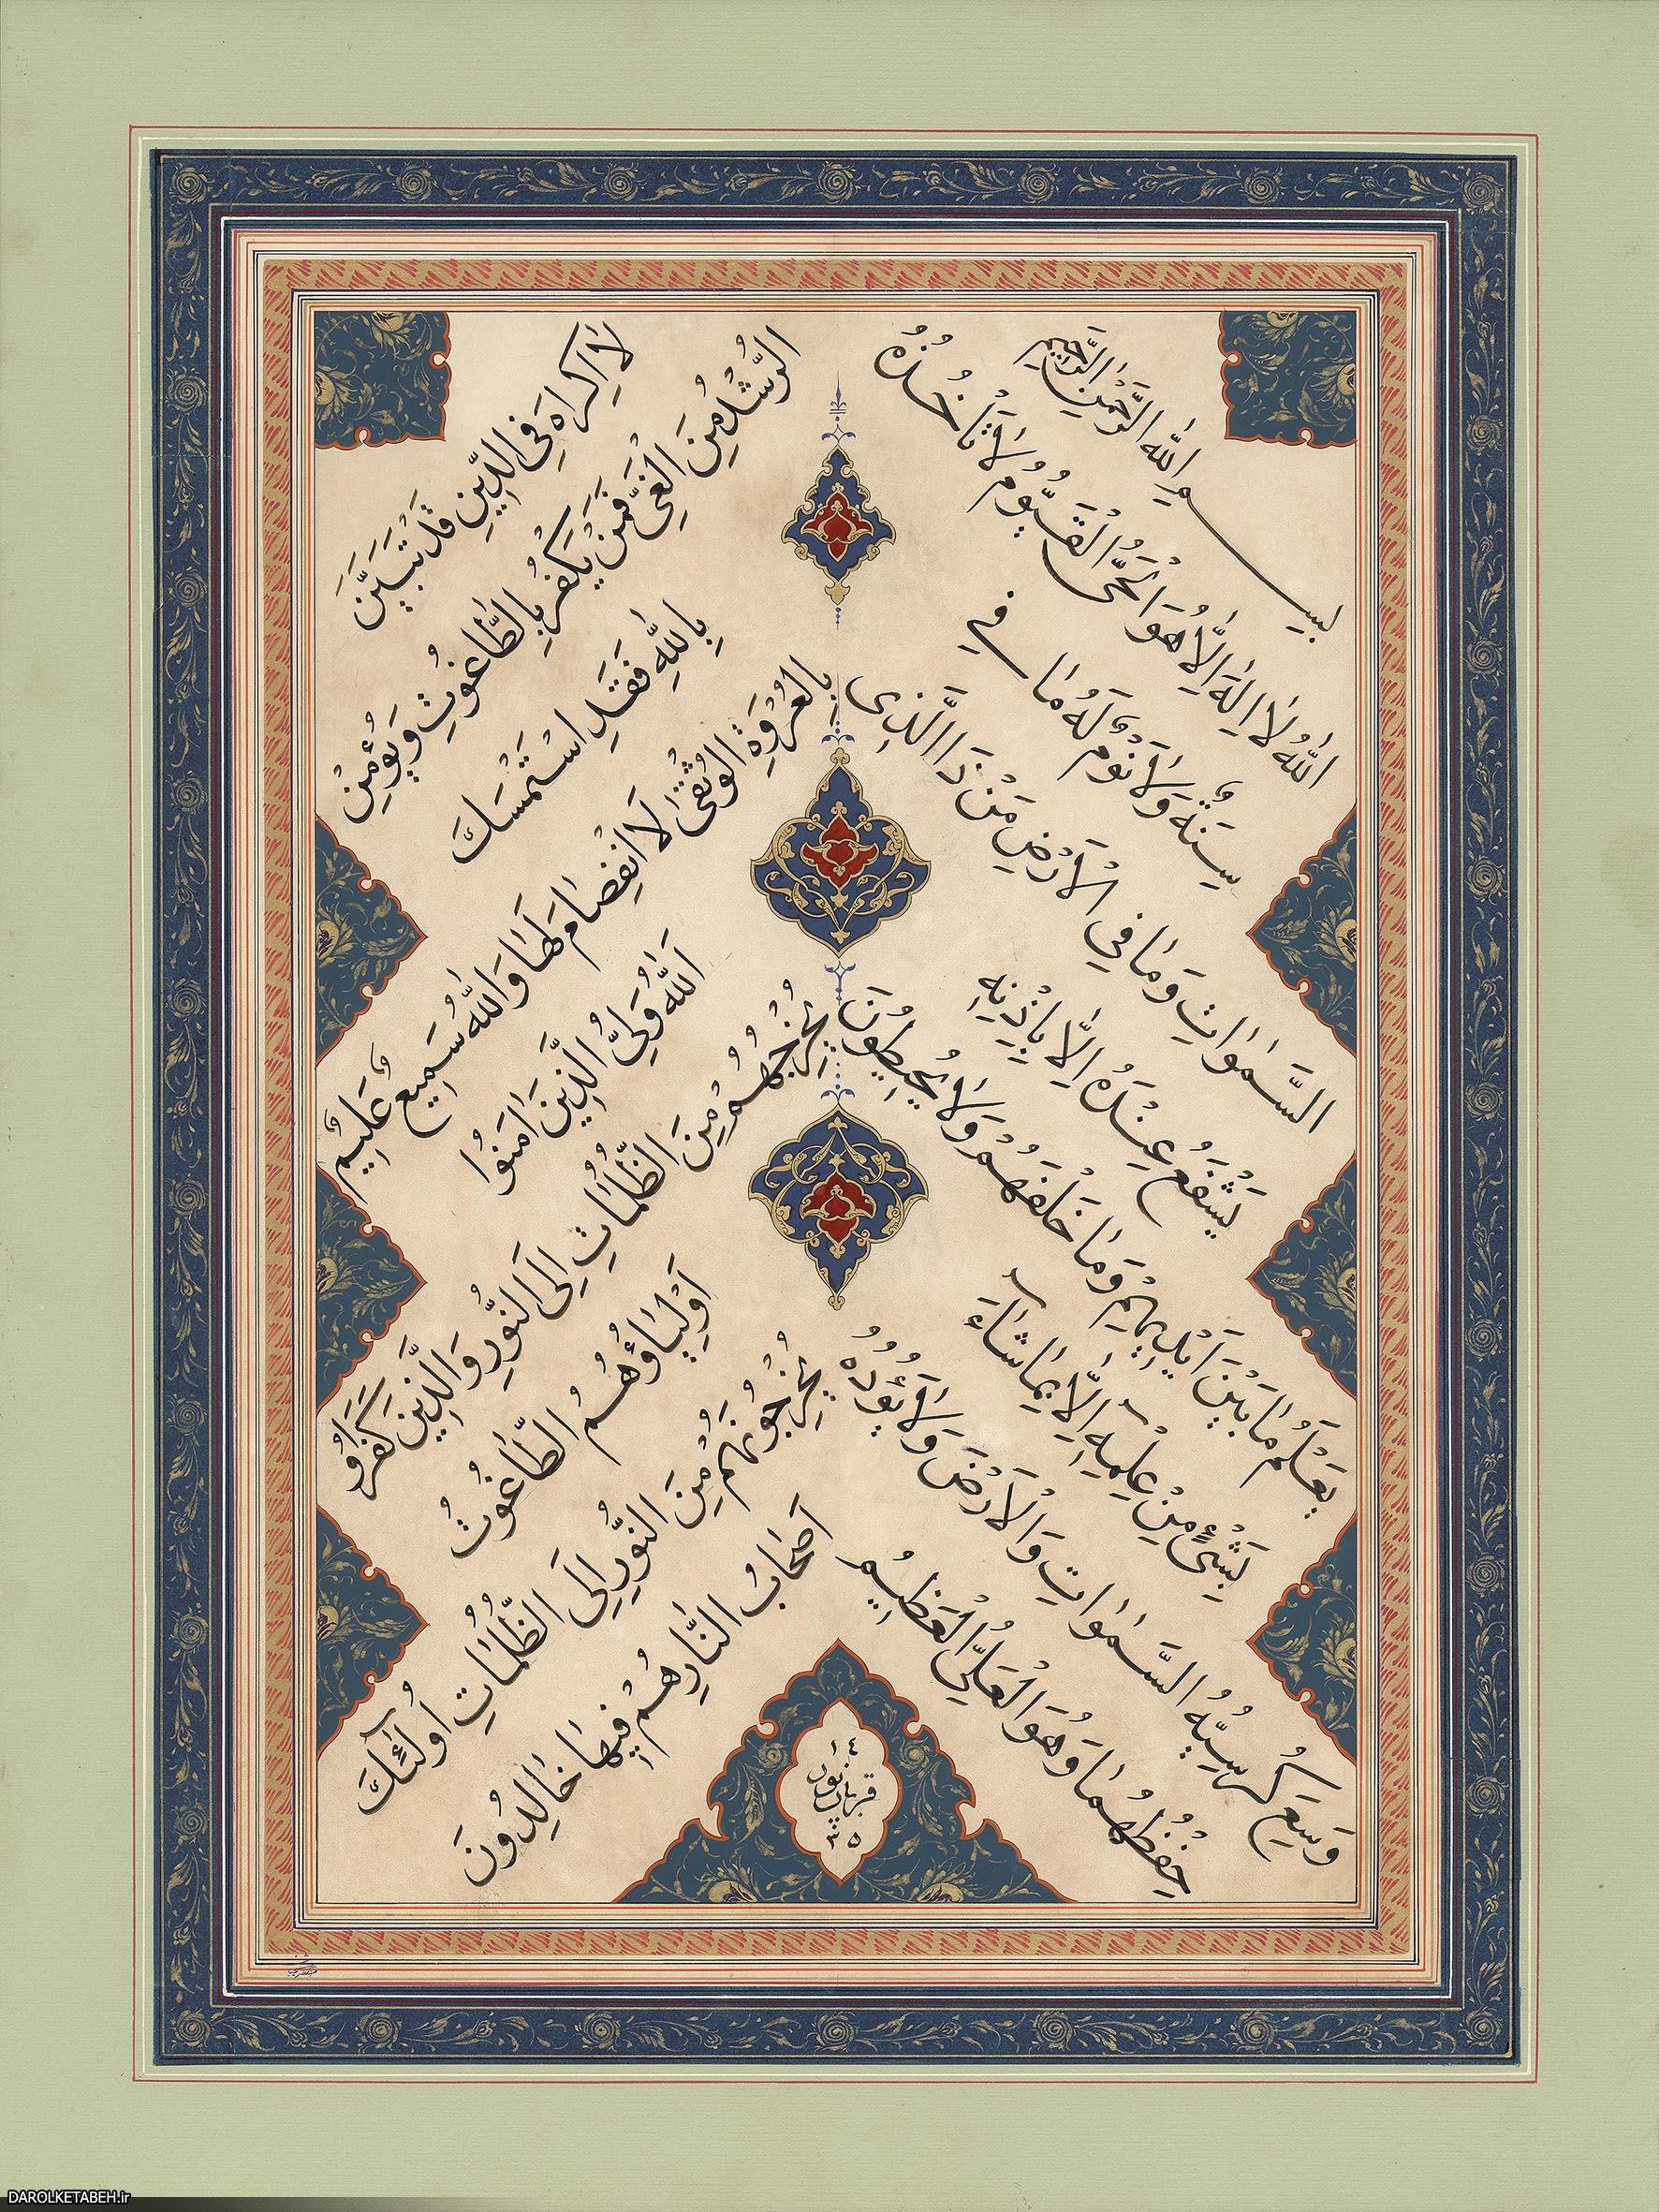 بِسْمِ اللّٰهِ الرَّحْمٰنِ الرَّحِيمِ
اللّٰهُ لَا اِلٰهَ اِلَّا هُوَ الْحَيُّ الْقَيُّومُ لَا تَأْخُذُهُ
سِنَةٌ وَلَا نَوْمٌ لَهُ مَا فِي
السَّمٰوَاتِ وَمَا فِي الْاَرْضِ مَنْ ذَا الَّذِي
يَشْفَعُ عِنْدَهُ اِلَّا بِاِذْنِهِ
يَعْلَمُ مَا بَيْنَ اَيْدِيهِمْ وَمَا خَلْفَهُمْ وَلَا يُحِيطُونَ
بِشَيْءٍ مِنْ عِلْمِهِ اِلَّا بِمَا شَاءَ
وَسِعَ كُرْسِيُّهُ السَّمٰوَاتِ وَالْاَرْضَ وَلَا يَؤُدُهُ
حِفْظُهُمَا وَهُوَ الْعَلِيُّ الْعَظِيمُ
لَا اِكْرَاهَ فِي الدِّينِ قَدْ تَبَيَّنَ
الرُّشْدُ مِنَ الْغَيِّ فَمَنْ يَكْفُرْ بِالطَّاغُوتِ وَيُؤْمِنْ
بِاللّٰهِ فَقَدِ اسْتَمْسَكَ
بِالْعُرْوَةِ الْوُثْقٰى لَا انْفِصَامَ لَهَا وَاللّٰهُ سَمِيعٌ عَلِيمٌ
اَللّٰهُ وَلِيُّ الَّذِينَ اٰمَنُوا
يُخْرِجُهُمْ مِنَ الظُّلُمَاتِ اِلَى النُّورِ وَالَّذِينَ كَفَرُوا
اَوْلِيَاؤُهُمُ الطَّاغُوتُ
يُخْرِجُونَهُمْ مِنَ النُّورِ اِلَى الظُّلُمَاتِ اُولٰئِكَ
اَصْحَابُ النَّارِ هُمْ فِيهَا خَالِدُونَ
DAROLKETABEH.ir